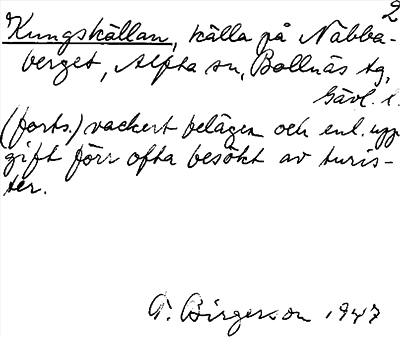 2
Kungskällan, källa på Näbba-
berget, Alfta sn, Bollnäs tg,
Gävl. l.
(forts.) vackert belägen och enl. upp
gift förr ofta besökt av turis-
ter.
P. Birgerson 1947